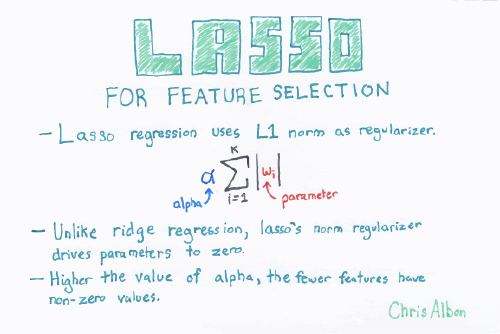 LASSO
FOR FEATURE SELECTION
- Lasso regression uses L1 norm as regularizer.
K
α Σ |wᵢ|
i=1
alpha parameter
- Unlike ridge regression, lasso's norm regularizer
drives parameters to zero.
- Higher the value of alpha, the fewer features have
non-zero values.
Chris Albon